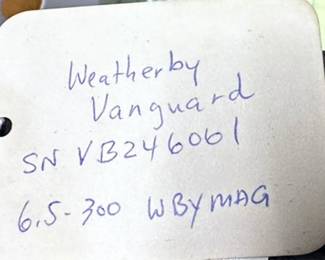 Weatherby
Vanguard
SN VB246061
6.5-300 WBYMAG